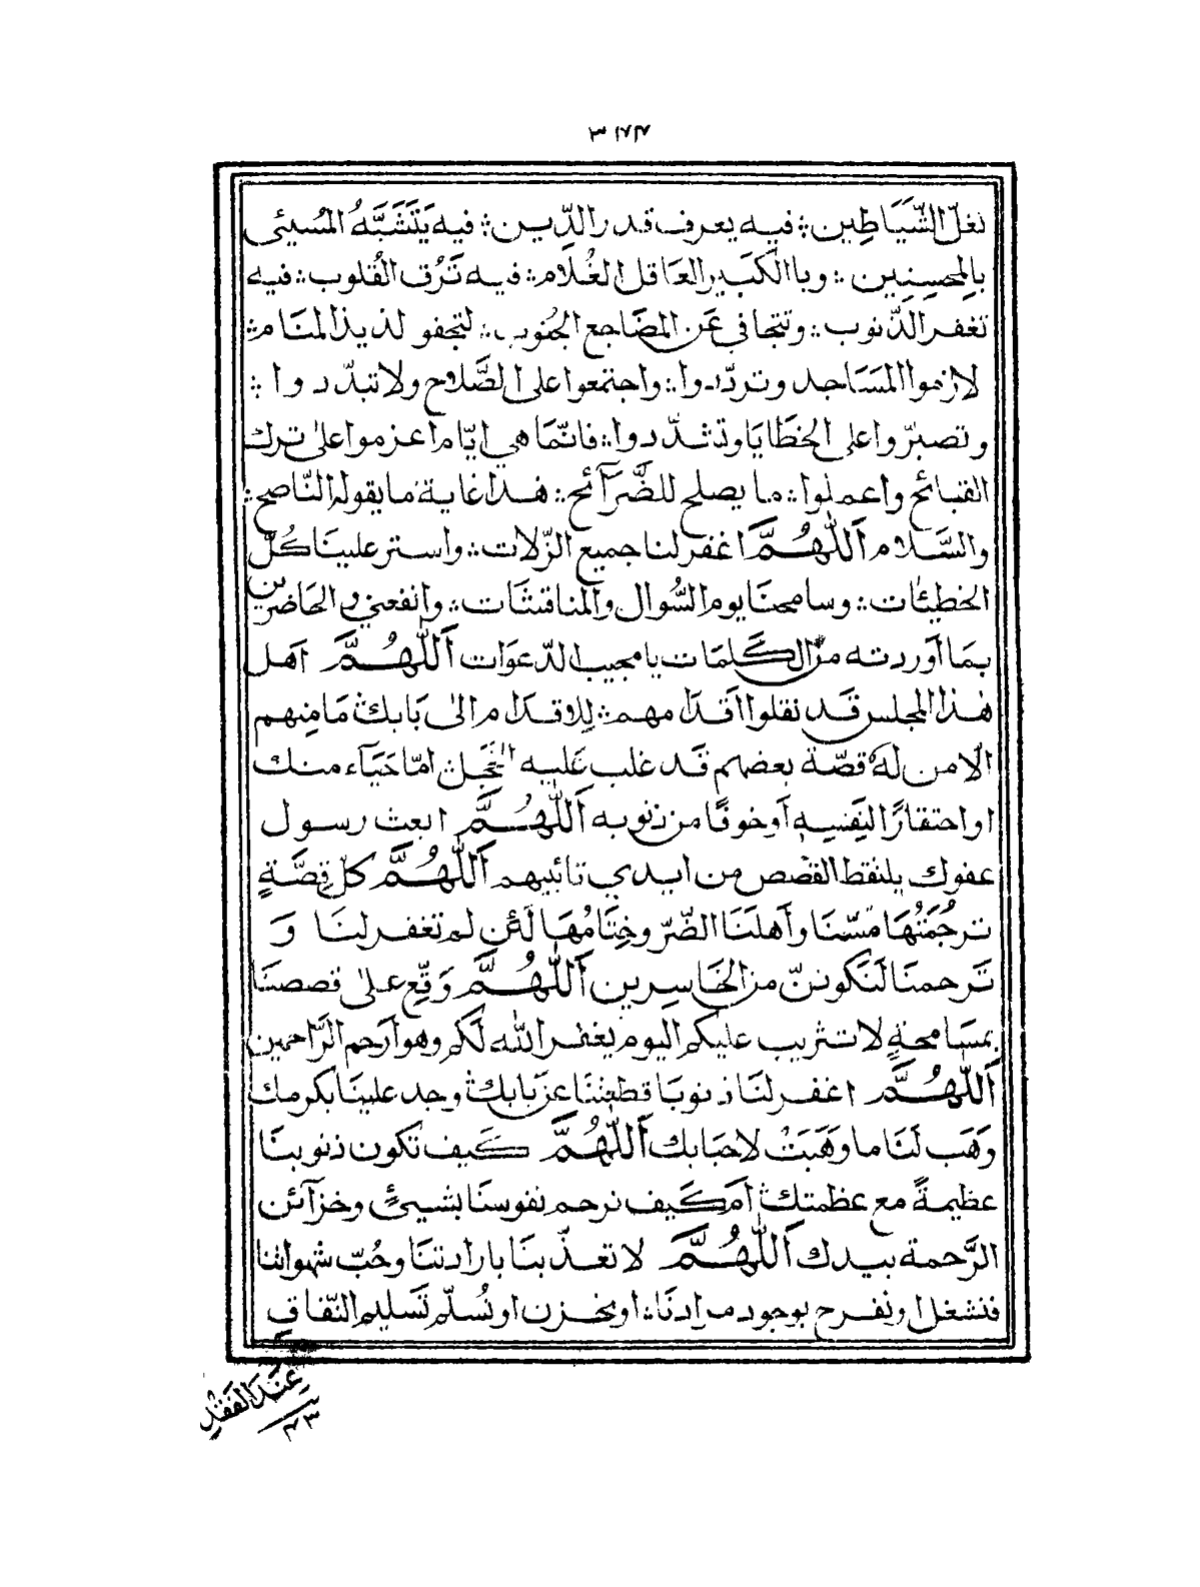 ٣١٧٤
تغلّ الشَّيَاطِين ؛ فيه يعرف قدر الدِّين ؛ فيه يَتَشَبَّهُ المُسيئى
بالمحسِنِين ؛ وبا الكَبير العَاقل الغُلام ؛ فيه تَرُق القُلوب ؛ فيه
تغفر الذّنوب ؛ وتتجافي عَن المضَاجع الجُنوب ؛ لتجفو لذيذ المنَام ؛
لازموا المسَاجد وتردّدوا ؛ واجتمعوا على الصَّلاح ولا تبدّدوا ؛
وتصبرّوا على الخطَايَا وتشدّدوا ؛ فانّمَا هي ايّام اعزموا على ترك
القبَائح واعملوا ؛ ما يصلح للضَّرَآئح ؛ هذا غاية ما يقوله النّاصح ؛
والسَّلام اَللّٰهُمَّ اغفر لنا جميع الزّلات ؛ واستر علينَا كُلّ
الخطيئات ؛ وسامحنَا يوم السُّوال والمناقشَات ؛ وانفعني والحَاضرين
بمَا اَوردته من الكَلمَات يا مجيب الدّعوَات اَللّٰهُمَّ اهل
هٰذا المجلس قَد نقلوا اَقدَامهم ؛ لِلاقدَام الىٰ بَابك مَا مِنهم
الّا من لَهُ قصّة بعضهم قَد غلب عَليه الخَجَل امّا حَيَآء منك
او احتقارًا لِنَفسِهٖ اَو خوفًا من ذنوبه اَللّٰهُمَّ ابعث رسول
عفوك يلتقط القصَص من ايدي تائبيهم اَللّٰهُمَّ كلّ قِصَّةٍ
ترجُمَتُهَا مَسّنَا وأَهلَنَا الضّرّ وخِتَامُهَا لَئن لم تغفر لنَا وَ
تَرحمنَا لَنَكوننّ من الخَاسِرين اَللّٰهُمَّ وَقّع علىٰ قصصنَا
بمسَامحةٍ لا تثريب عليكم اليوم يغفر اللّٰه لَكم وهو اَرحم الرَّاحمين
اَللّٰهُمَّ اغفر لنَا ذنوبَا قطعتنَا عن بَابك وجد علينَا بكرمك
وَهَب لَنَا ما وَهَبَتْ لاحبَابك اَللّٰهُمَّ كَيف تُكون ذنوبنَا
عظيمةً مع عظمتك اَم كَيف نرحم نفوسنَا بشيئٍ وخزآئن
الرَّحمة بيدك اَللّٰهُمَّ لا تعذّبنَا بارادتنَا وحُبّ شهواتنا
فنشغل او نفرح بوجود مرادنَا ؛ او نحزن او نُسلّم تَسليم النّفاق
عِندَ الفَقد
٤٣